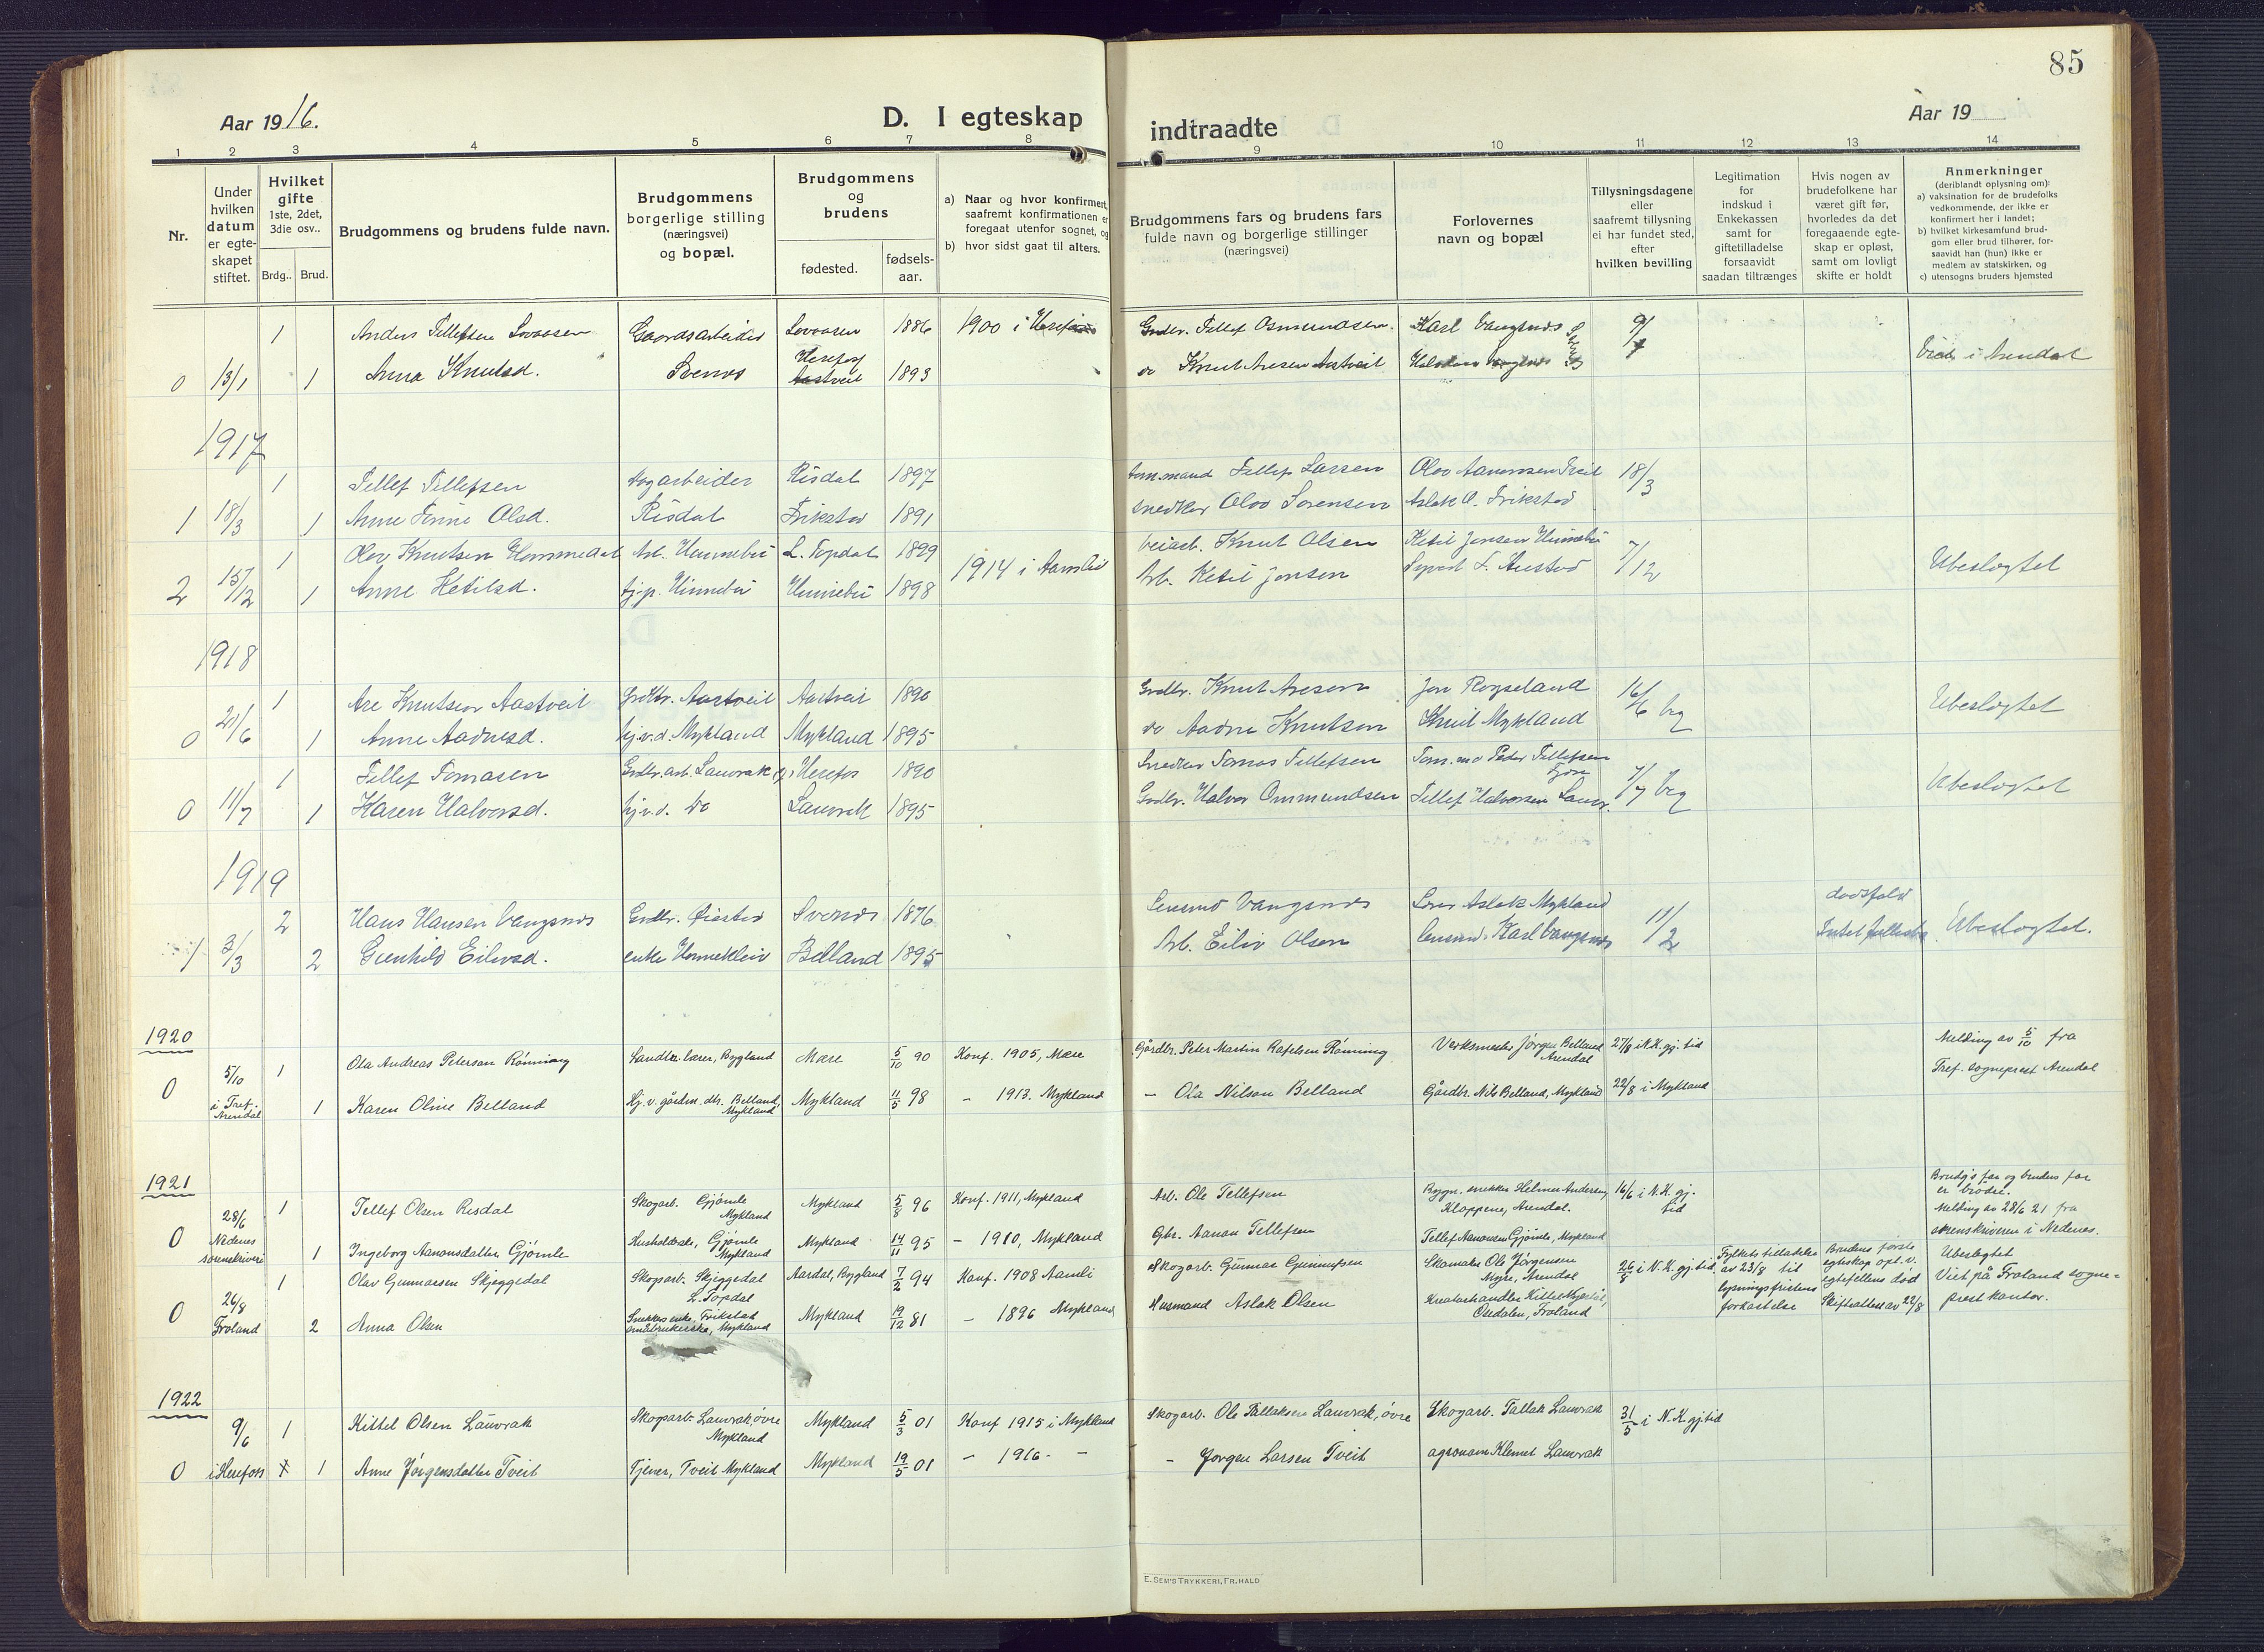 85
Aar 1916.
D. I egteskap
indtraadte
Aar 19
1 2 3 4 5 6 7 8 9 10 11 12 13 14
Nr.
Under hvilken datum er egteskapet stiftet.
Hvilket gifte 1ste, 2det, 3die osv..
Brdg.. Brud.
Brudgommens og brudens fulde navn.
Brudgommens borgerlige stilling (næringsvei) og bopæl.
Brudgommens og brudens
fødested.
fødsels-aar.
a) Naar og hvor konfirmert, saafremt konfirmationen er foregaat utenfor sognet, og
b) hvor sidst gaat til alters.
Brudgommens fars og brudens fars fulde navn og borgerlige stillinger (næringsvei)
Forlovernes navn og bopæl
Tillysningsdagene eller saafremt tillysning ei har fundet sted, efter hvilken bevilling
Legitimation for indskud i Enkekassen samt for giftetilladelse forsaavidt saadan tiltrænges
Hvis nogen av brudefolkene har været gift før, hvorledes da det foregaaende egteskap er opløst, samt om lovligt skifte er holdt
Anmerkninger (deriblandt oplysning om):
a) vaksination for de brudefolks vedkommende, der ikke er konfirmert her i landet;
b) hvilket kirkesamfund brudgom eller brud tilhører, forsaavidt han (hun) ikke er medlem av statskirken, og
c) utensogns bruders hjemsted
1 Anders Tellefsen Lovaasen Gaardsarbeider Lovaasen 1886 1900 i Herefos Grdbr. Tellef Osmundsen. Karl Vangsnes 9/
0 13/1 1 Anna Knutsd. Svenes Herefos 1893 do Knut Aresen Aastveit Halvdan i Arendal
1917
1 Tellef Tellefsen Risdal 1897 Tellef Larsen Olav Aanonsen Tveit 18/3
1 18/3 1 Anne Tinne Olsd. Risdal Trikstad 1891 Snedker Olav Sorensen Aslak O. Trikstad
1 Olav Knutsen Hommedal Arb. Hinnebu L. Topdal 1899 1914 i Aamlid Veiarb. Knut Olsen Ketil Jensen Hinnebu 7/12 Ubeslogtet
2 15/12 1 Anne Ketilsd. Hj. p. Hinnebu Hinnebu 1898 Arb. Ketil Jensen
1918
1 Are Knutsen Aastveit Grdbr. Aastveit Aastveit 1890 Grdbr. Knut Aresen Jon Rogseland 16/6 brg Ubeslogtet
0 21/6 1 Anne Aadnesd. hj. v. d. Mykland Mykland 1895 do Aadne Knutsen Mykland
1 Tellef Tomasen Grdbr. arb. Lauvrak Herefos 1890 Snedker Tomas Tellefsen Peder Tellefsen 7/7 brg Ubeslogtet
0 11/7 1 Karen Halvorsd. hj. v. d. Do Lauvrak 1895 Grdbr. Halvor Ommundsen Tellef Halvorsen Lauvr.
1919
2 Hans Hansen Vangsnes Grdbr. Øiestad Svenes 1876 Lensmd Vangsnes Aslak Mykland 11/2 dødsfald
1 3/3 2 Gunhild Eilevsd. enke Hommekleiv Belland 1895 Arb. Eiliv Olsen Lensmd. Karl Vangsnes Intet Ubeslogtet.
1920
5/10 1 Ola Andreas Peterson Rønning Landbr. lærer, Bygland Mære 5/10 90 Konf. 1905, Mære Gårdbr. Peter Martin Rafelsen Rønning Verksmester Jørgen Belland Arendal 27/8 i N.K. gj. tid Melding av 5/10 fra
0 i Tref. Arendal 1 Karen Oline Belland Hj. v. gårdm. dtr. Belland, Mykland Mykland 11/5 98 – 1913. Mykland – Ola Nilson Belland Gårdbr. Nils Belland, Mykland 22/8 i Mykland Tref. sogneprest Arendal
1921
28/6 1 Tellef Olsen Risdal Skogarb. Gjømle Mykland Mykland 5/8 96 Konf. 1911, Mykland Arb. Ole Tellefsen Bygn. snekker Helmer Andersen Kloppene, Arendal. 16/6 i N.K. gj. tid Brudg's far og brudens far er brødre. Melding av 28/6 21 fra
0 Nedenes sorenskriveri 1 Ingeborg Aanonsdatter Gjømle Husholdske, Gjømle Mykland Mykland 14/11 95 – 1910, Mykland Gbr. Aanon Tellefsen Tellef Aanonsen Gjømle, Mykland sorenskriveren i Nedenes.
1 Olav Gunnarsen Skjeggedal Skogarb. Skjeggedal L. Topdal Aardal, Bygland 7/2 94 Konf. 1908 Aamli Skogarb. Gunnar Gunnufsen Skomaker Ole Jørgensen Myre, Arendal 26/8 i N.K. gj. tid Fylkets tilladelse av 23/8 til lysningsfristens forkastelse Brudens første egteskap opl. v. egtefellens død Skifteattest av 22/8 Ubeslogtet
0 26/8 Froland 2 Anna Olsen Snekkers enke. Trikstad småbrukerske, Mykland Mykland 19/12 81 – 1896 Mykland Husmand Aslak Olsen Kreaturhandler Osedalen, Froland Viet på Froland sogneprestkontor.
1922
9/6 1 Kittel Olsen Lauvrak Skogarb. Lauvrak, øvre Mykland Mykland 5/3 01 Konf 1915 i Mykland Skogarb. Ole Tallaksen Lauvrak, øvre Skogarb. Tallak Lauvrak 31/5 i N.K. gj. tid
0 i Herefoss 1 Anne Jørgensdatter Tveit Tjener, Tveit Mykland Mykland 19/5 01 – 1916 – – – Jørgen Larsen Tveit agronom Klemet Lauvrak
E. SEM'S TRYKKERI, FR. HALD